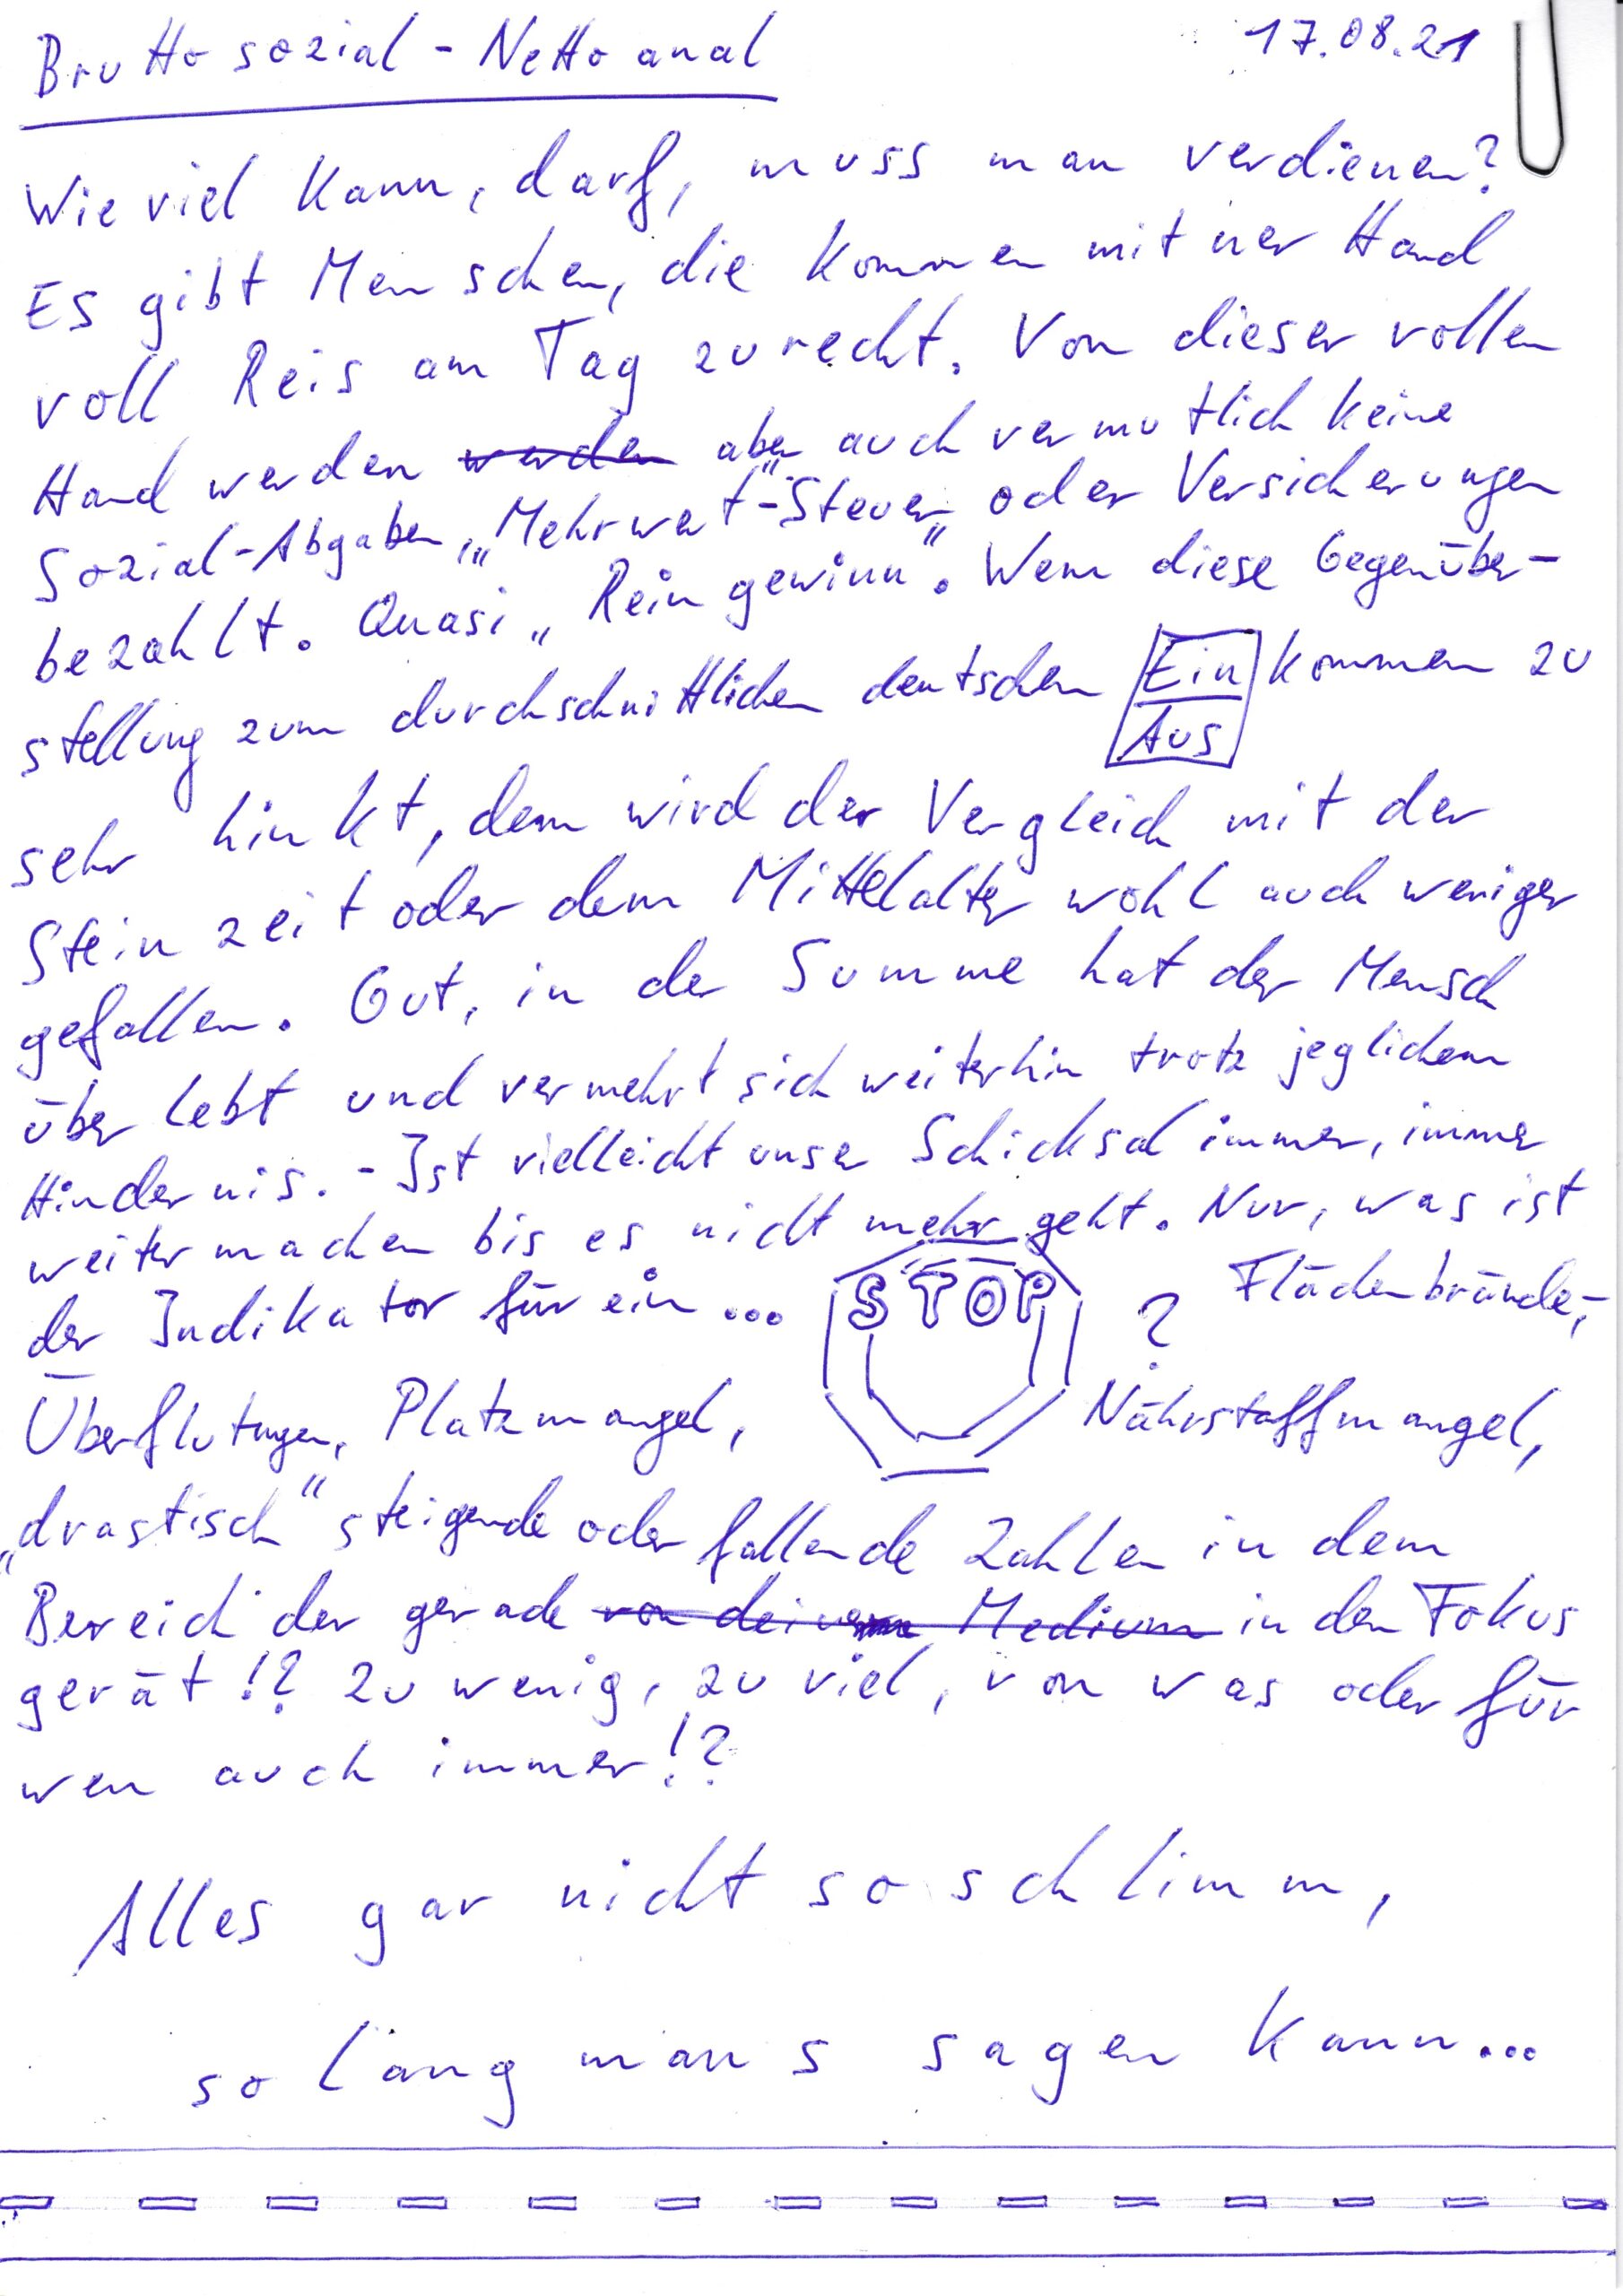 Brutto sozial - Netto anal 17.08.21
Wie viel kann, darf, muss man verdienen?
Es gibt Menschen, die kommen mit ner Hand
voll Reis am Tag zurecht. Von dieser vollen
Hand werden werden aber auch vermutlich keine
Sozial-Abgaben, „Mehrwert"-Steuer oder Versicherungen
bezahlt. Quasi „Reingewinn". Wem diese Gegenüber-
stellung zum durchschnittlichen deutschen Ein kommen zu
Aus
sehr hinkt, dem wird der Vergleich mit der
Steinzeit oder dem Mittelalter wohl auch weniger
gefallen. Gut, in der Summe hat der Mensch
überlebt und vermehrt sich weiterhin trotz jeglichem
Hindernis. - Ist vielleicht unser Schicksal immer, immer
weiter machen bis es nicht mehr geht. Nur, was ist
der Indikator für ein ... STOP ? Flächenbrände,
Überflutungen, Platzmangel, Nährstoffmangel,
„drastisch" steigende oder fallende Zahlen in dem
Bereich der gerade von deinem Medium in den Fokus
gerät!? Zu wenig, zu viel, von was oder für
wen auch immer!?
Alles gar nicht so schlimm,
so lang mans sagen kann...